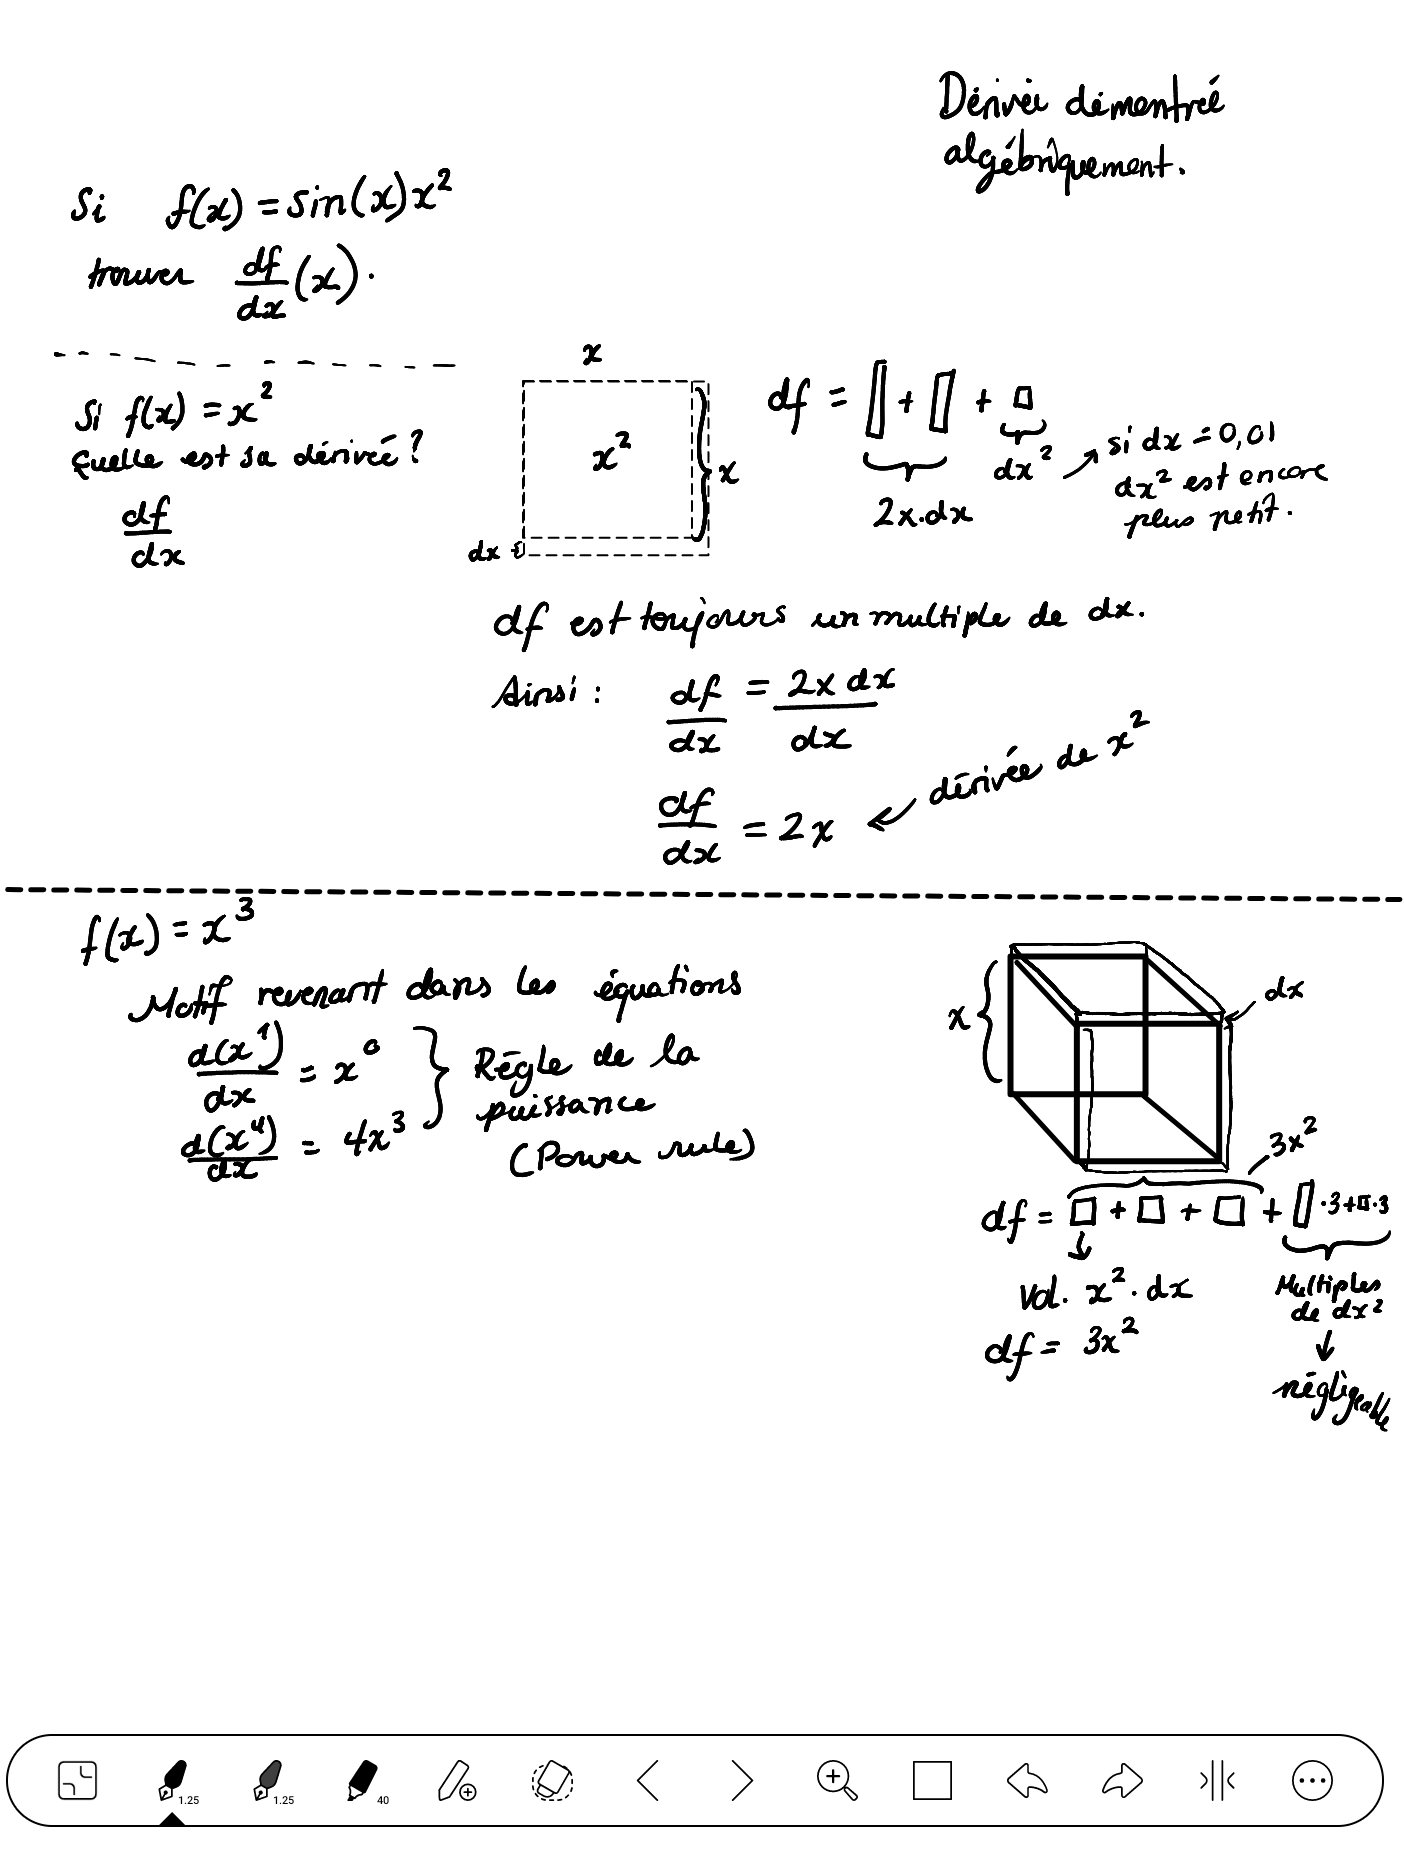 Dérivée démontreé
algébriquement.
Si f(x) = sin(x)x²
trouver df/dx (x).
Si f(x) = x²
Quelle est sa dériveé?
df/dx
x
x²
x
dx
df = ▯ + ▯ + □
2x.dx
dx²
si dx = 0,01
dx² est encore
plus petit.
df est toujours un multiple de dx.
Ainsi : df/dx = 2x dx/dx
df/dx = 2x
dérivée de x²
f(x) = x³
Motif revenant dans les équations
d(x¹)/dx = x⁰
d(x⁴)/dx = 4x³
Régle de la
puissance
(Power rule)
x
dx
3x²
df = □ + □ + □ + ▯ ·3+□·3
Vol. x² · dx
df = 3x²
Multiples
de dx²
négligeable
1.25
1.25
40